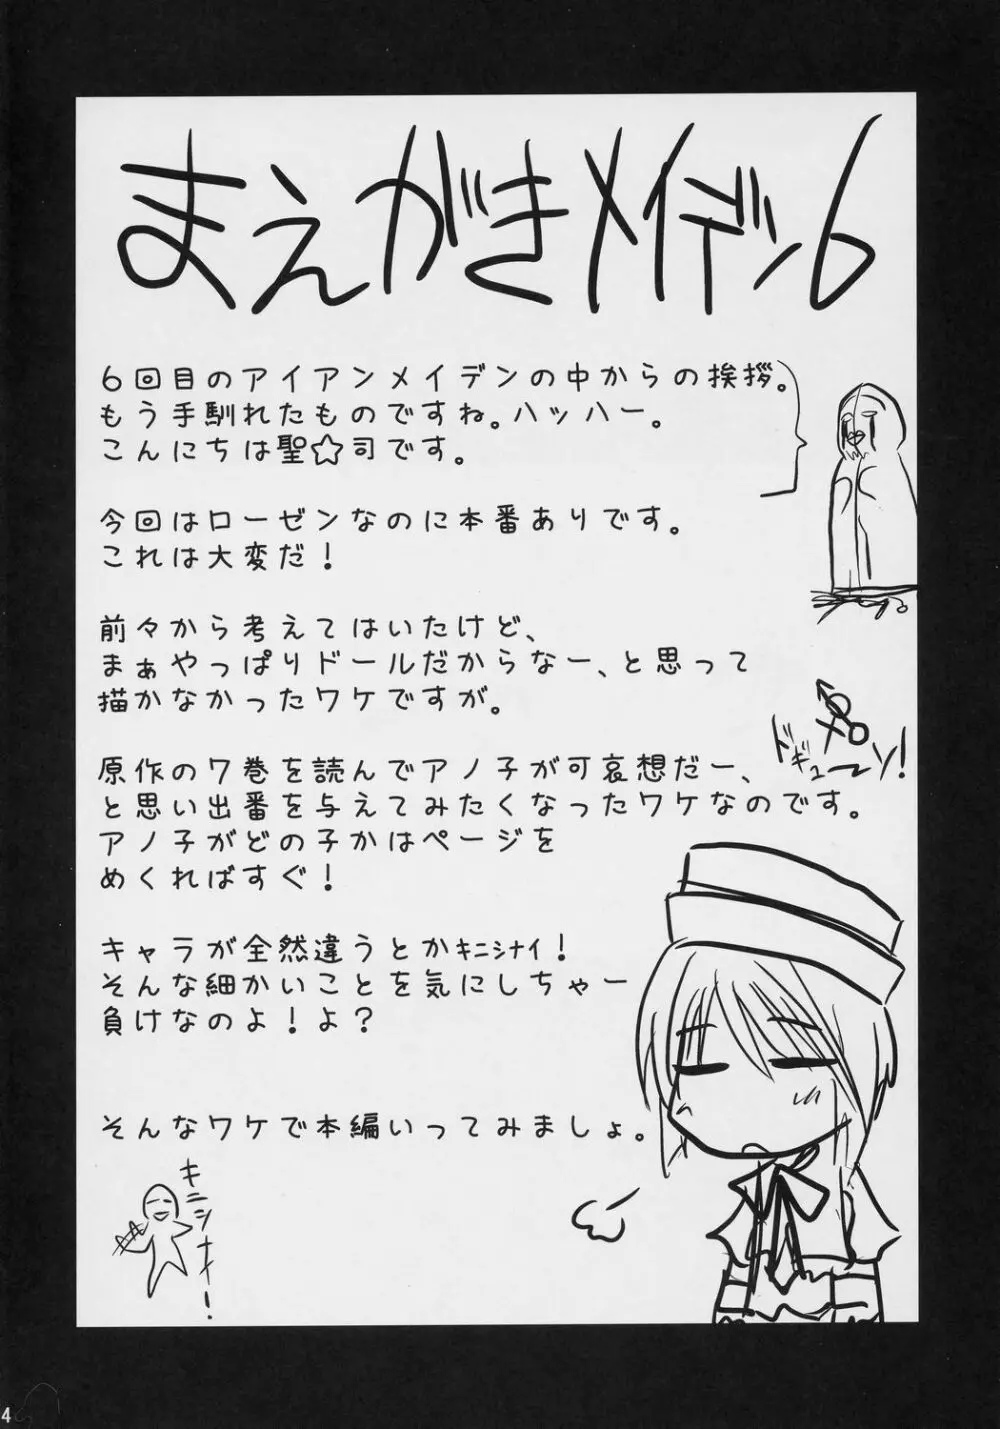 まえがきメイデン6
6回目のアイアンメイデンの中からの挨拶。
もう手馴れたものですね。ハッハー。
こんにちは聖☆司です。
今回はローゼンなのに本番ありです。
これは大変だ!
前々から考えてはいたけど、
まぁやっぱりドールだからなー、と思って
描かなかったワケですが。
ドギューン!
原作の7巻を読んでアノ子が可哀想だー、
と思い出番を与えてみたくなったワケなのです。
アノ子がどの子かはページを
めくればすぐ!
キャラが全然違うとかキニシナイ!
そんな細かいことを気にしちゃー
負けなのよ!よ?
そんなワケで本編いってみましょ。
キニシナイ!
4